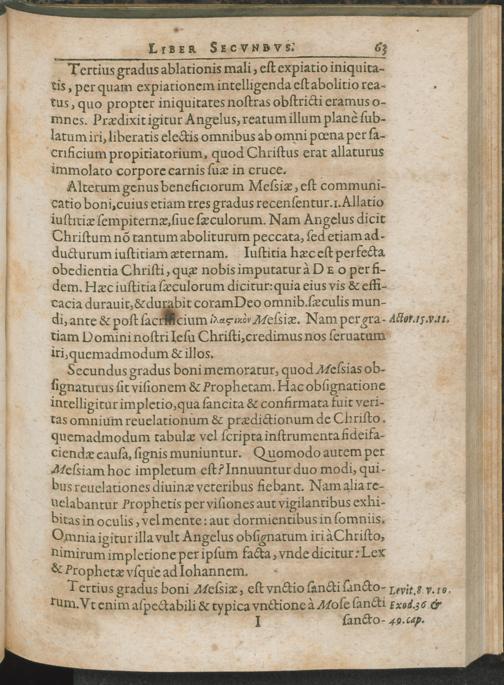 LIBER SECVNDVS. 63
Tertius gradus ablationis mali, est expiatio iniquita-
tis, per quam expiationem intelligenda est abolitio rea-
tus, quo propter iniquitates nostras obstricti eramus o-
mnes. Prædixit igitur Angelus, reatum illum planè sub-
latum iri, liberatis electis omnibus ab omni pœna per sa-
crificium propitiatorium, quod Christus erat allaturus
immolato corpore carnis suæ in cruce.
Alterum genus beneficiorum Messiæ, est communi-
catio boni, cuius etiam tres gradus recensentur. 1. Allatio
iustitiæ sempiternæ, siue sæculorum. Nam Angelus dicit
Christum nõ tantum aboliturum peccata, sed etiam ad-
ducturum iustitiam æternam. Iustitia hæc est perfecta
obedientia Christi, quæ nobis imputatur à DEO per fi-
dem. Hæc iustitia sæculorum dicitur: quia eius vis & effi-
cacia durauit, & durabit coram Deo omnib. sæculis mun-
di, ante & post sacrificium ἱλαςικὸν Messiæ. Nam per gra- Actor. 15. v. 11.
tiam Domini nostri Iesu Christi, credimus nos seruatum
iri, quemadmodum & illos.
Secundus gradus boni memoratur, quod Messias ob-
signaturus sit visionem & Prophetam. Hac obsignatione
intelligitur impletio, qua sancita & confirmata fuit veri-
tas omnium reuelationum & prædictionum de Christo.
quemadmodum tabulæ vel scripta instrumenta fidei fa-
ciendæ causa, signis muniuntur. Quomodo autem per
Messiam hoc impletum est? Innuuntur duo modi, qui-
bus reuelationes diuinæ veteribus fiebant. Nam alia re-
uelabantur Prophetis per visiones aut vigilantibus exhi-
bitas in oculis, vel mente: aut dormientibus in somniis.
Omnia igitur illa vult Angelus obsignatum iri à Christo,
nimirum impletione per ipsum facta, vnde dicitur: Lex
& Prophetæ vsque ad Iohannem.
Tertius gradus boni Messiæ, est vnctio sancti sancto- Levit. 8. v. 10.
rum. Vt enim aspectabili & typica vnctione à Mose sancti Exod. 36 &
I sancto- 40. cap.